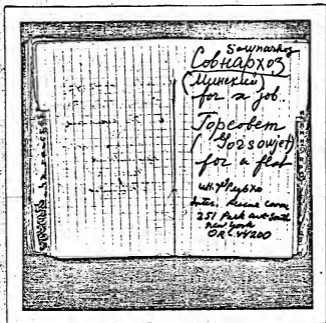 Sownarhoz
Совнархоз
(Минский)
for a job..
Горсовет
(Gorsovjet)
for a flat
Inter. Rescue Comm
251 Park ave South
New York
OR 4-4200